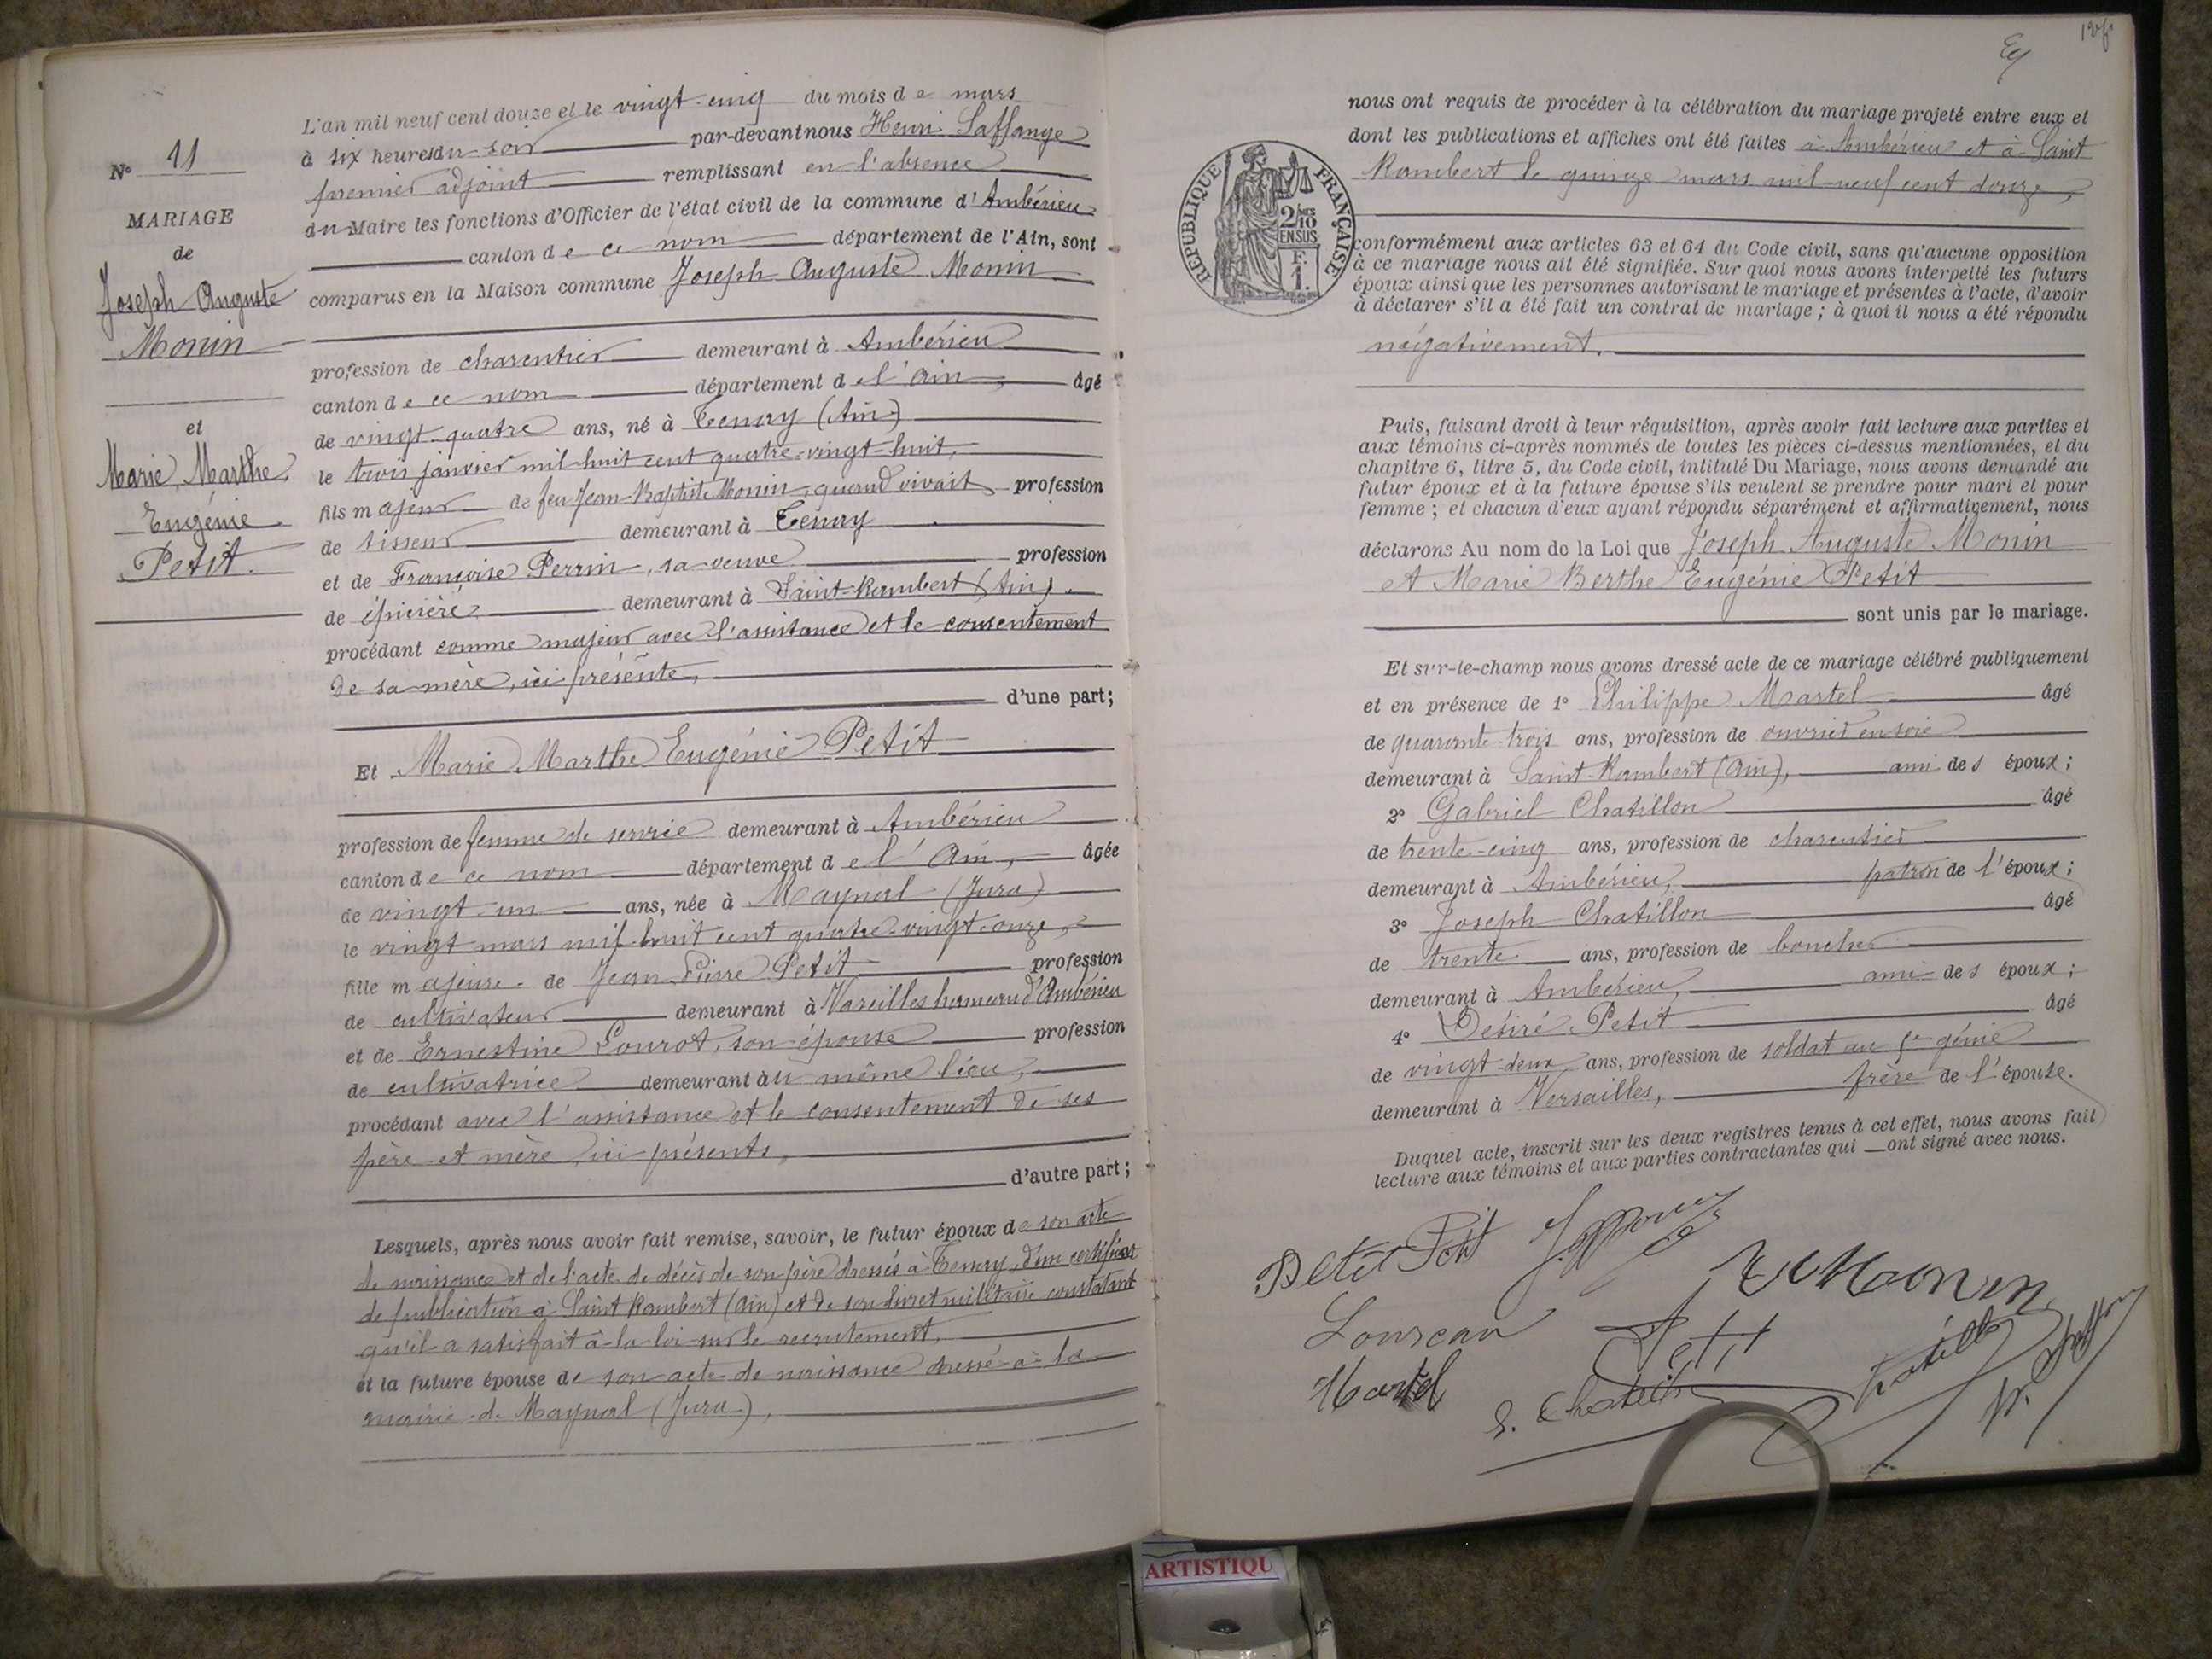 N° 11
MARIAGE
de
Joseph Auguste
Monin
et
Marie Marthe
Eugénie
Petit
L'an mil neuf cent douze et le vingt-cinq du mois de mars
à six heures du soir par-devant nous Henri Laffange
premier adjoint remplissant en l'absence
du Maire les fonctions d'Officier de l'état civil de la commune d'Ambérieu
canton de ce nom département de l'Ain, sont
comparus en la Maison commune Joseph Auguste Monin
profession de charcutier demeurant à Ambérieu
canton de ce nom département de l'Ain, âgé
de vingt-quatre ans, né à Tenay (Ain)
le trois janvier mil huit cent quatre-vingt-huit,
fils majeur de feu Jean-Baptiste Monin, quand vivait profession
de tisseur demeurant à Tenay
et de Françoise Perrin, sa veuve profession
de épicière demeurant à Saint-Rambert (Ain).
procédant comme majeur avec l'assistance et le consentement
de sa mère, ici présente,
d'une part;
Et Marie Marthe Eugénie Petit
profession de femme de service demeurant à Ambérieu
canton de ce nom département de l'Ain, âgée
de vingt-un ans, née à Maynal (Jura)
le vingt mars mil huit cent quatre-vingt-onze,
fille majeure de Jean Pierre Petit profession
de cultivateur demeurant à Vareilles hameau d'Ambérieu
et de Ernestine Lourot, son épouse profession
de cultivatrice demeurant àu même lieu,
procédant avec l'assistance et le consentement de ses
père et mère, ici présents,
d'autre part;
Lesquels, après nous avoir fait remise, savoir, le futur époux de son acte
de naissance et de l'acte de décès de son père dressés à Tenay, d'un certificat
de publication à Saint Rambert (Ain) et de son livret militaire constatant
qu'il a satisfait à la loi sur le recrutement,
et la future épouse de son acte de naissance dressé à la
mairie de Maynal (Jura),
RÉPUBLIQUE FRANÇAISE
2/10
EN SUS
F.
1.
nous ont requis de procéder à la célébration du mariage projeté entre eux et
dont les publications et affiches ont été faites à Ambérieu et à Saint
Rambert le quinze mars mil neuf cent douze,
conformément aux articles 63 et 64 du Code civil, sans qu'aucune opposition
à ce mariage nous ait été signifiée. Sur quoi nous avons interpellé les futurs
époux ainsi que les personnes autorisant le mariage et présentes à l'acte, d'avoir
à déclarer s'il a été fait un contrat de mariage; à quoi il nous a été répondu
négativement.
Puis, faisant droit à leur réquisition, après avoir fait lecture aux parties et
aux témoins ci-après nommés de toutes les pièces ci-dessus mentionnées, et du
chapitre 6, titre 5, du Code civil, intitulé Du Mariage, nous avons demandé au
futur époux et à la future épouse s'ils veulent se prendre pour mari et pour
femme; et chacun d'eux ayant répondu séparément et affirmativement, nous
déclarons Au nom de la Loi que Joseph Auguste Monin
et Marie Berthe Eugénie Petit
sont unis par le mariage.
Et sur-le-champ nous avons dressé acte de ce mariage célébré publiquement
et en présence de 1° Philippe Martel âgé
de quarante-trois ans, profession de ouvrier en soie
demeurant à Saint-Rambert (Ain), ami des époux;
2° Gabriel Chatillon âgé
de trente-cinq ans, profession de charcutier
demeurant à Ambérieu, patron de l'époux;
3° Joseph Chatillon âgé
de trente ans, profession de boucher
demeurant à Ambérieu, ami des époux;
4° Désiré Petit âgé
de vingt-deux ans, profession de soldat au 5e génie
demeurant à Versailles, frère de l'épouse.
Duquel acte, inscrit sur les deux registres tenus à cet effet, nous avons fait
lecture aux témoins et aux parties contractantes qui ont signé avec nous.
Petit Petit
Monin
Martel
Petit
ARTISTIQU